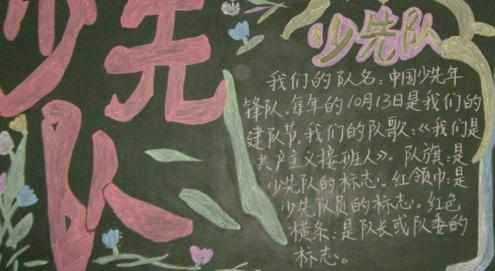 少先
队
少先队
我们的队名：中国少先年
锋队。每年的10月13日是我们的
建队节。我们的队歌：《我们是
共产主义接班人》。队旗：是
少先队的标志。红领巾：是
少先队员的标志。红色
横条：是队长或队委的
标志。